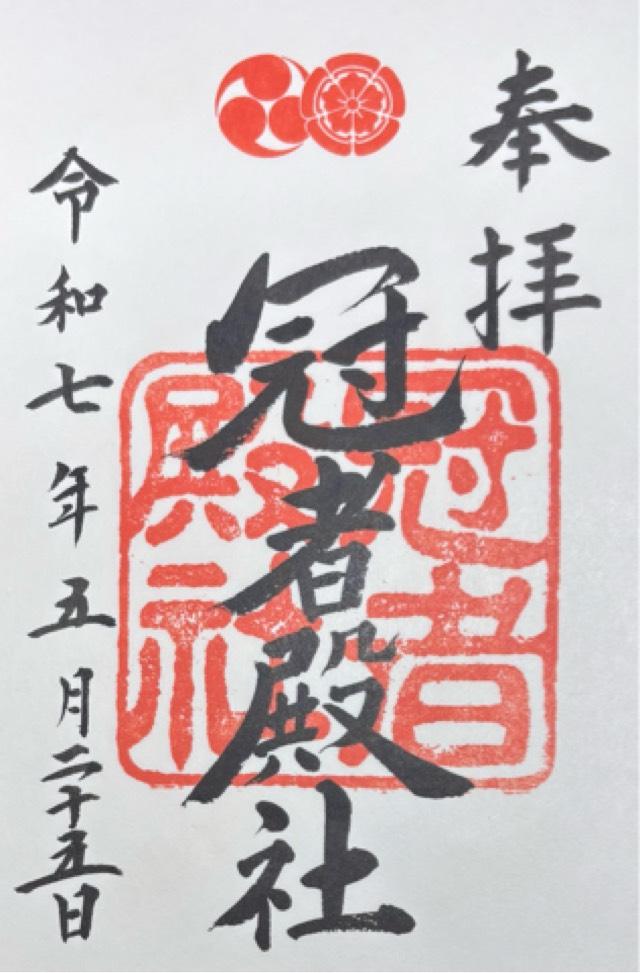 奉拝
冠者殿社
冠者殿社
令和七年五月二十五日